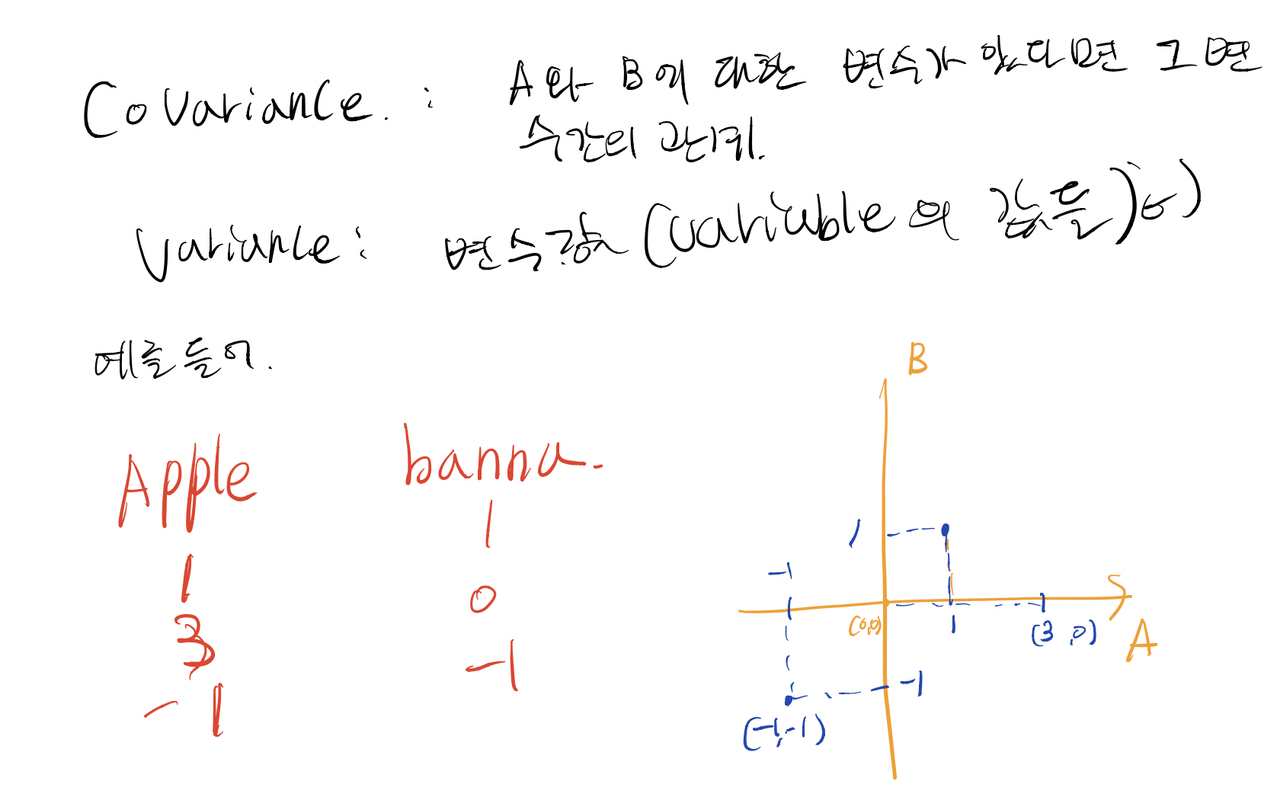 Covariance. : A와 B에 대한 변수가 있다면 그 변
수간의 관계.
Variance : 변수 (variable의 값들)
예를들어.
B
Apple banna.
1 1
3 0
-1 -1
1
-1
(0,0) 1 (3,0) A
-1
(-1,-1)